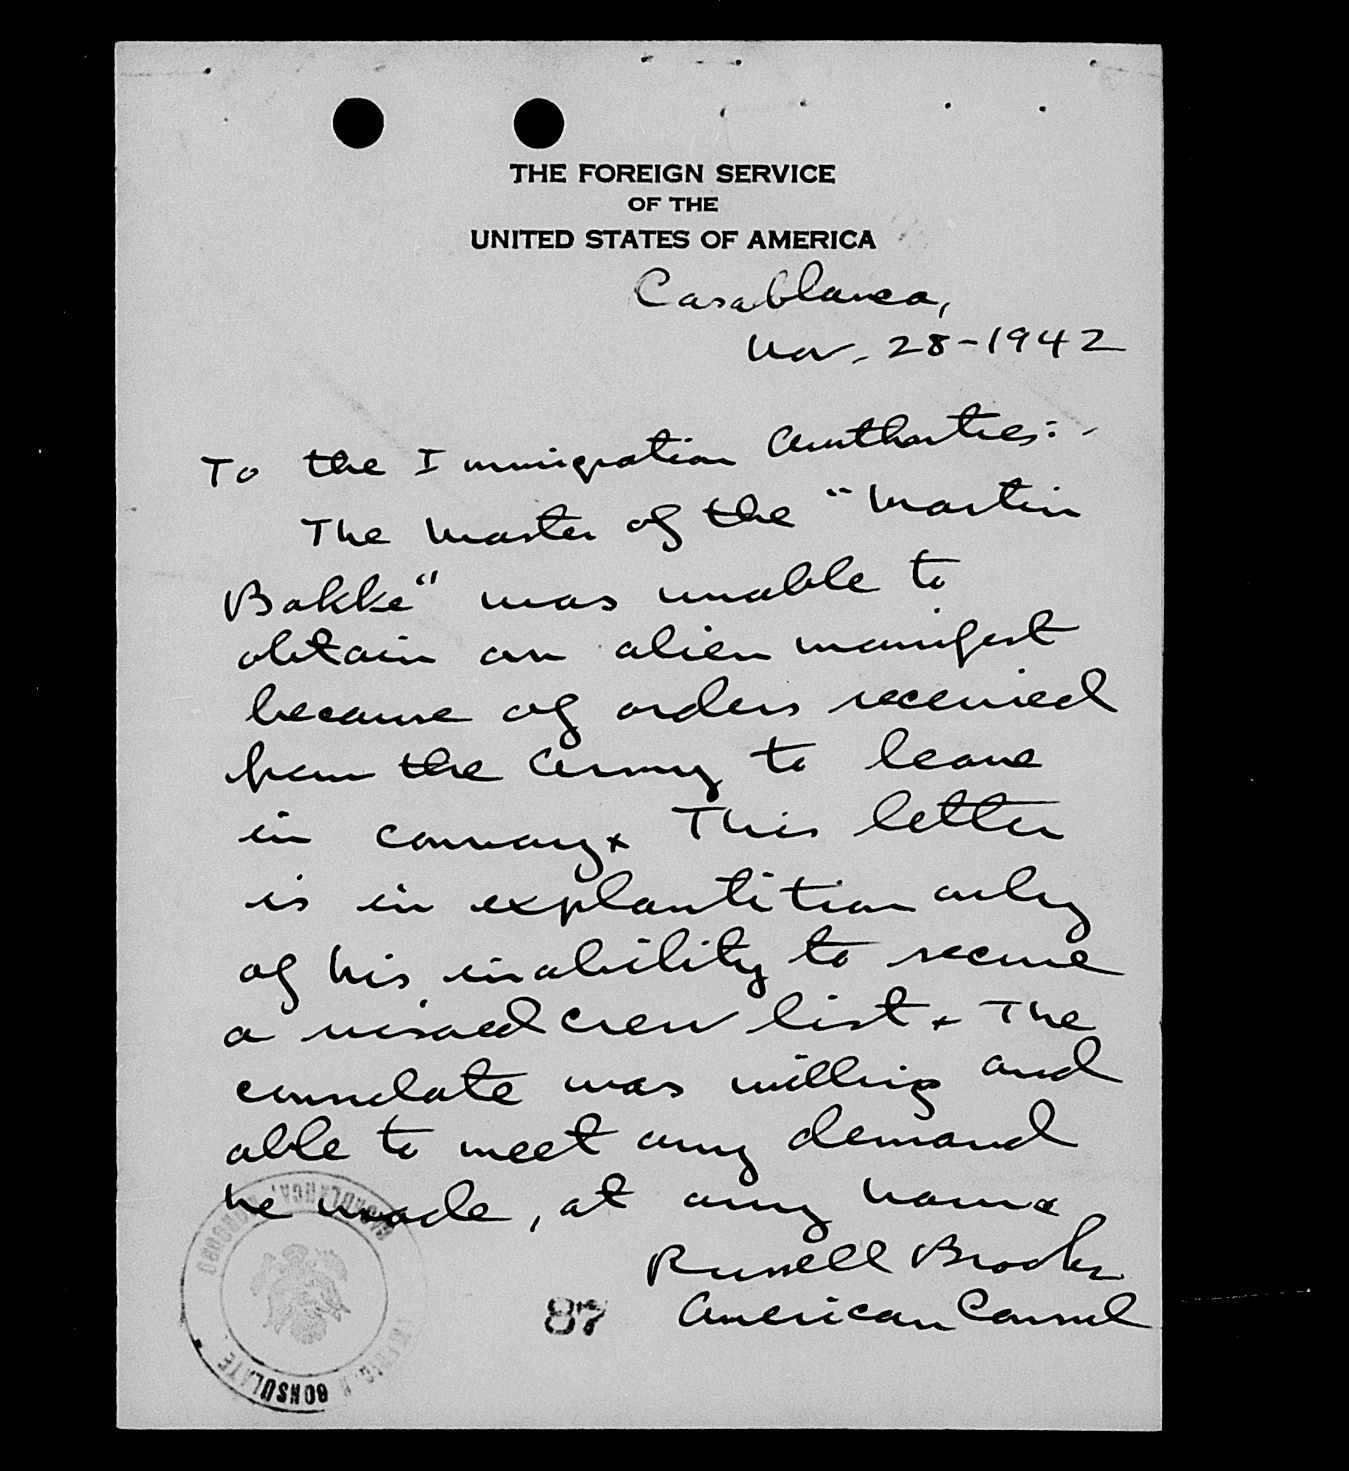 THE FOREIGN SERVICE
OF THE
UNITED STATES OF AMERICA
Casablanca,
Nov. 28-1942
To the Immigration Authorties:-
The Master of the "Martin
Bakke" was unable to
obtain an alien manifest
because of orders received
from the Army to leave
in convoy. This letter
is in explantition only
of his inability to secure
a visaed crew list. The
consulate was willing and
able to meet any demand
he made, at any
Russell Brooks
American Consul
87
CASABLANCA, MOROCCO
AMERICAN CONSULATE